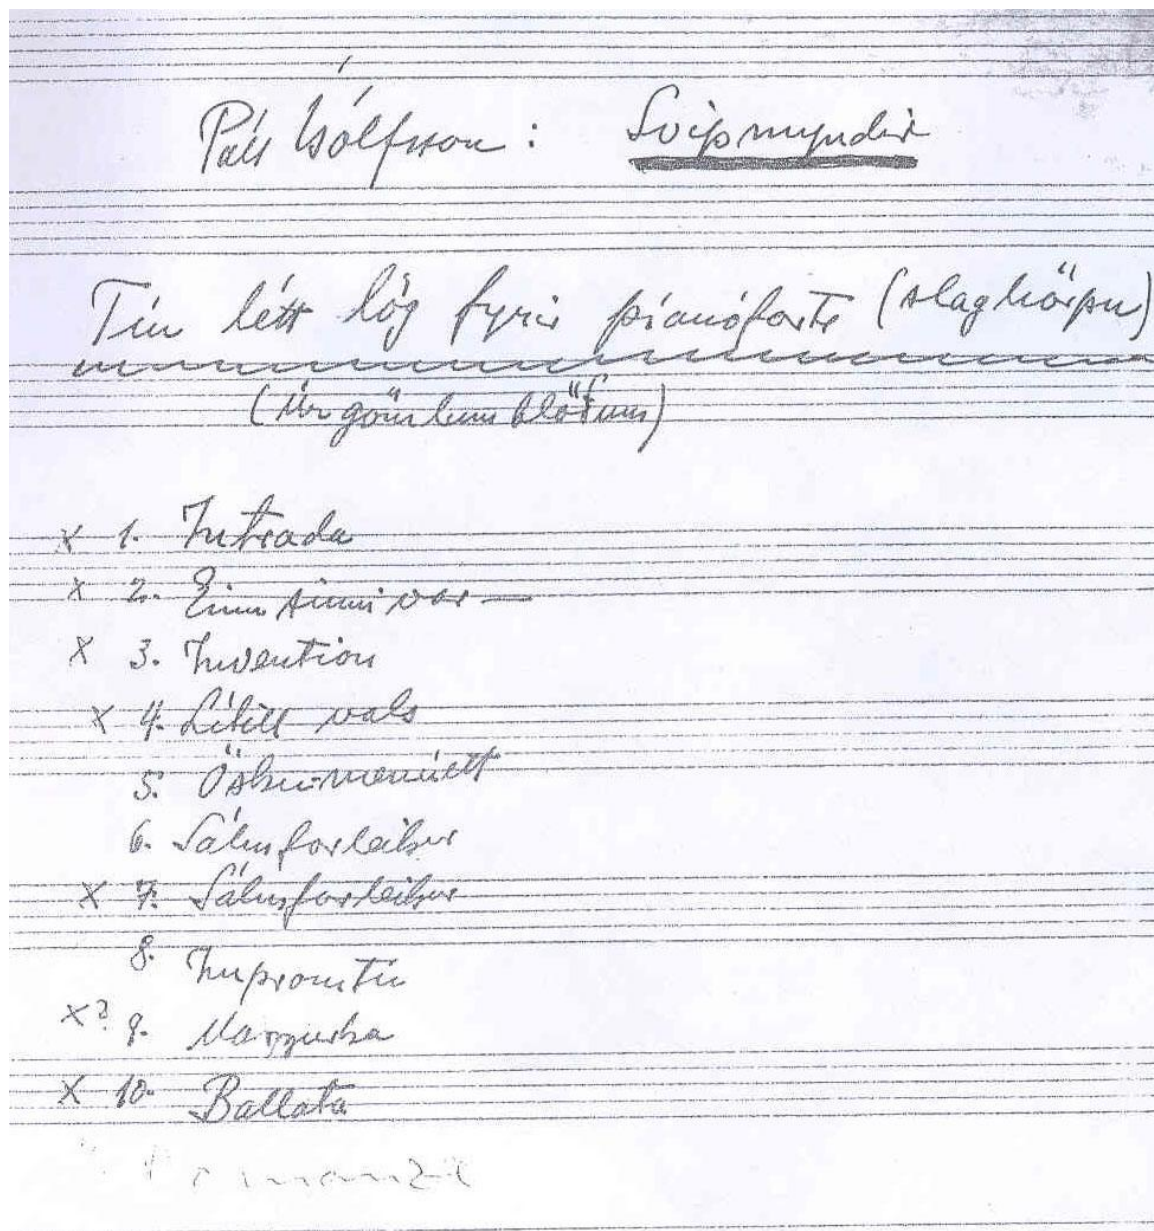 Páll Ísólfsson: Svipmyndir
Tíu létt lög fyrir píanóforte (slaghörpu)
(Úr gömlum blöðum)
x 1. Intrada
x 2. Einu sinni var —
x 3. Invention
x 4. Lítill vals
5. Ösku-menúett
6. Sálmforleikur
x 7. Sálmforleikur
8. Impromtu
x? 9. Mazzurka
x 10. Ballata